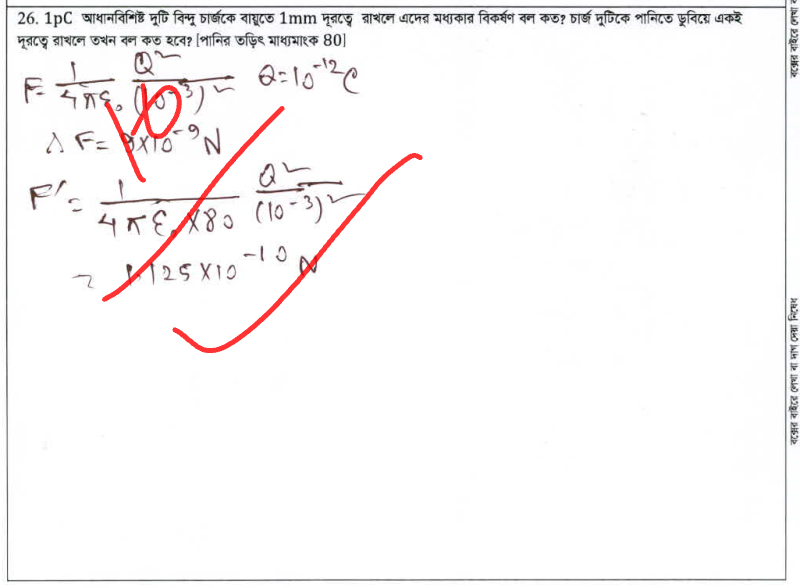 26. 1pC আধানবিশিষ্ট দুটি বিন্দু চার্জকে বায়ুতে 1mm দূরত্বে রাখলে এদের মধ্যকার বিকর্ষণ বল কত? চার্জ দুটিকে পানিতে ডুবিয়ে একই
দূরত্বে রাখলে তখন বল কত হবে? [পানির তড়িৎ মাধ্যমাংক 80]
F = 1/4πε₀ Q²/(10⁻³)² Q=10⁻¹²C
∴ F = 9×10⁻⁹ N
F' = 1/4πε₀×80 Q²/(10⁻³)²
= 1.125×10⁻¹⁰ N
10
বক্সের বাইরে লেখা বা দাগ দেয়া নিষেধ